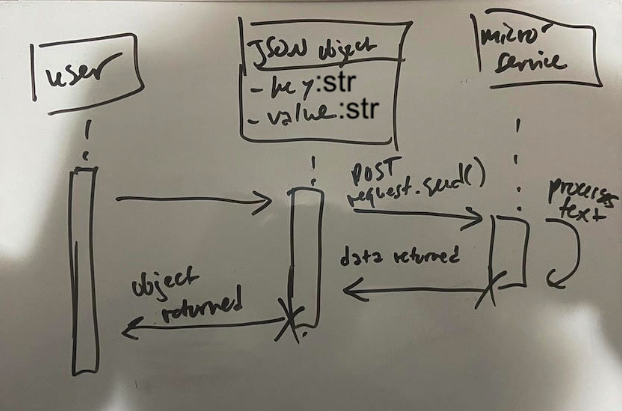 user
JSON object
- key:str
- value:str
micro
service
POST
request.send()
process
text
data returned
object
returned